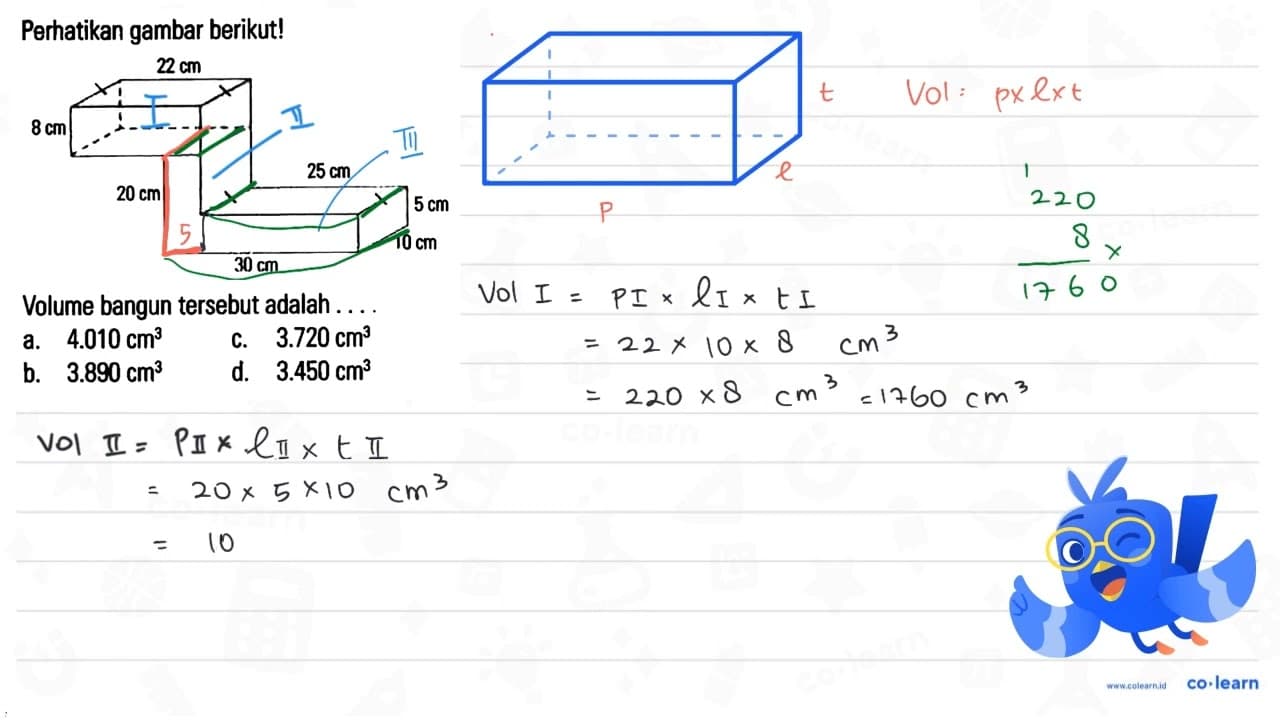 Perhatikan gambar berikut!
22 cm
I
II
III
8 cm
25 cm
20 cm
5 cm
5
10 cm
30 cm
Volume bangun tersebut adalah . . . .
a. 4.010 cm³ c. 3.720 cm³
b. 3.890 cm³ d. 3.450 cm³
t
l
p
Vol : p x l x t
1
220
8 x
1760
Vol I = PI × lI × tI
= 22 × 10 × 8 cm³
= 220 × 8 cm³ = 1760 cm³
Vol II = PII × lII × tII
= 20 × 5 × 10 cm³
= 10
www.colearn.id co·learn